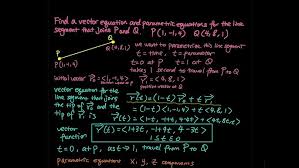 Find a vector equation and parametric equations for the line
segment that joins P and Q. P(1,-1,4) Q(4,8,1)
Q(4,8,1)
P
P(1,-1,4)
we want to parametrize this line segment
t = time
t=0 at P t=1 at Q
takes 1 second to travel from P to Q
initial vector
vector equation for the
line segment that joins
the tip of r₀ and the
tip of r₁ is
r(t) = (1-t) r₀ + t r₁
vector
function
r(t) = ⟨1+3t, -1+9t, 4-3t⟩
0 ≤ t ≤ 1
t=0, at P, as t→1, travel from P to Q
parametric equations x, y, z components